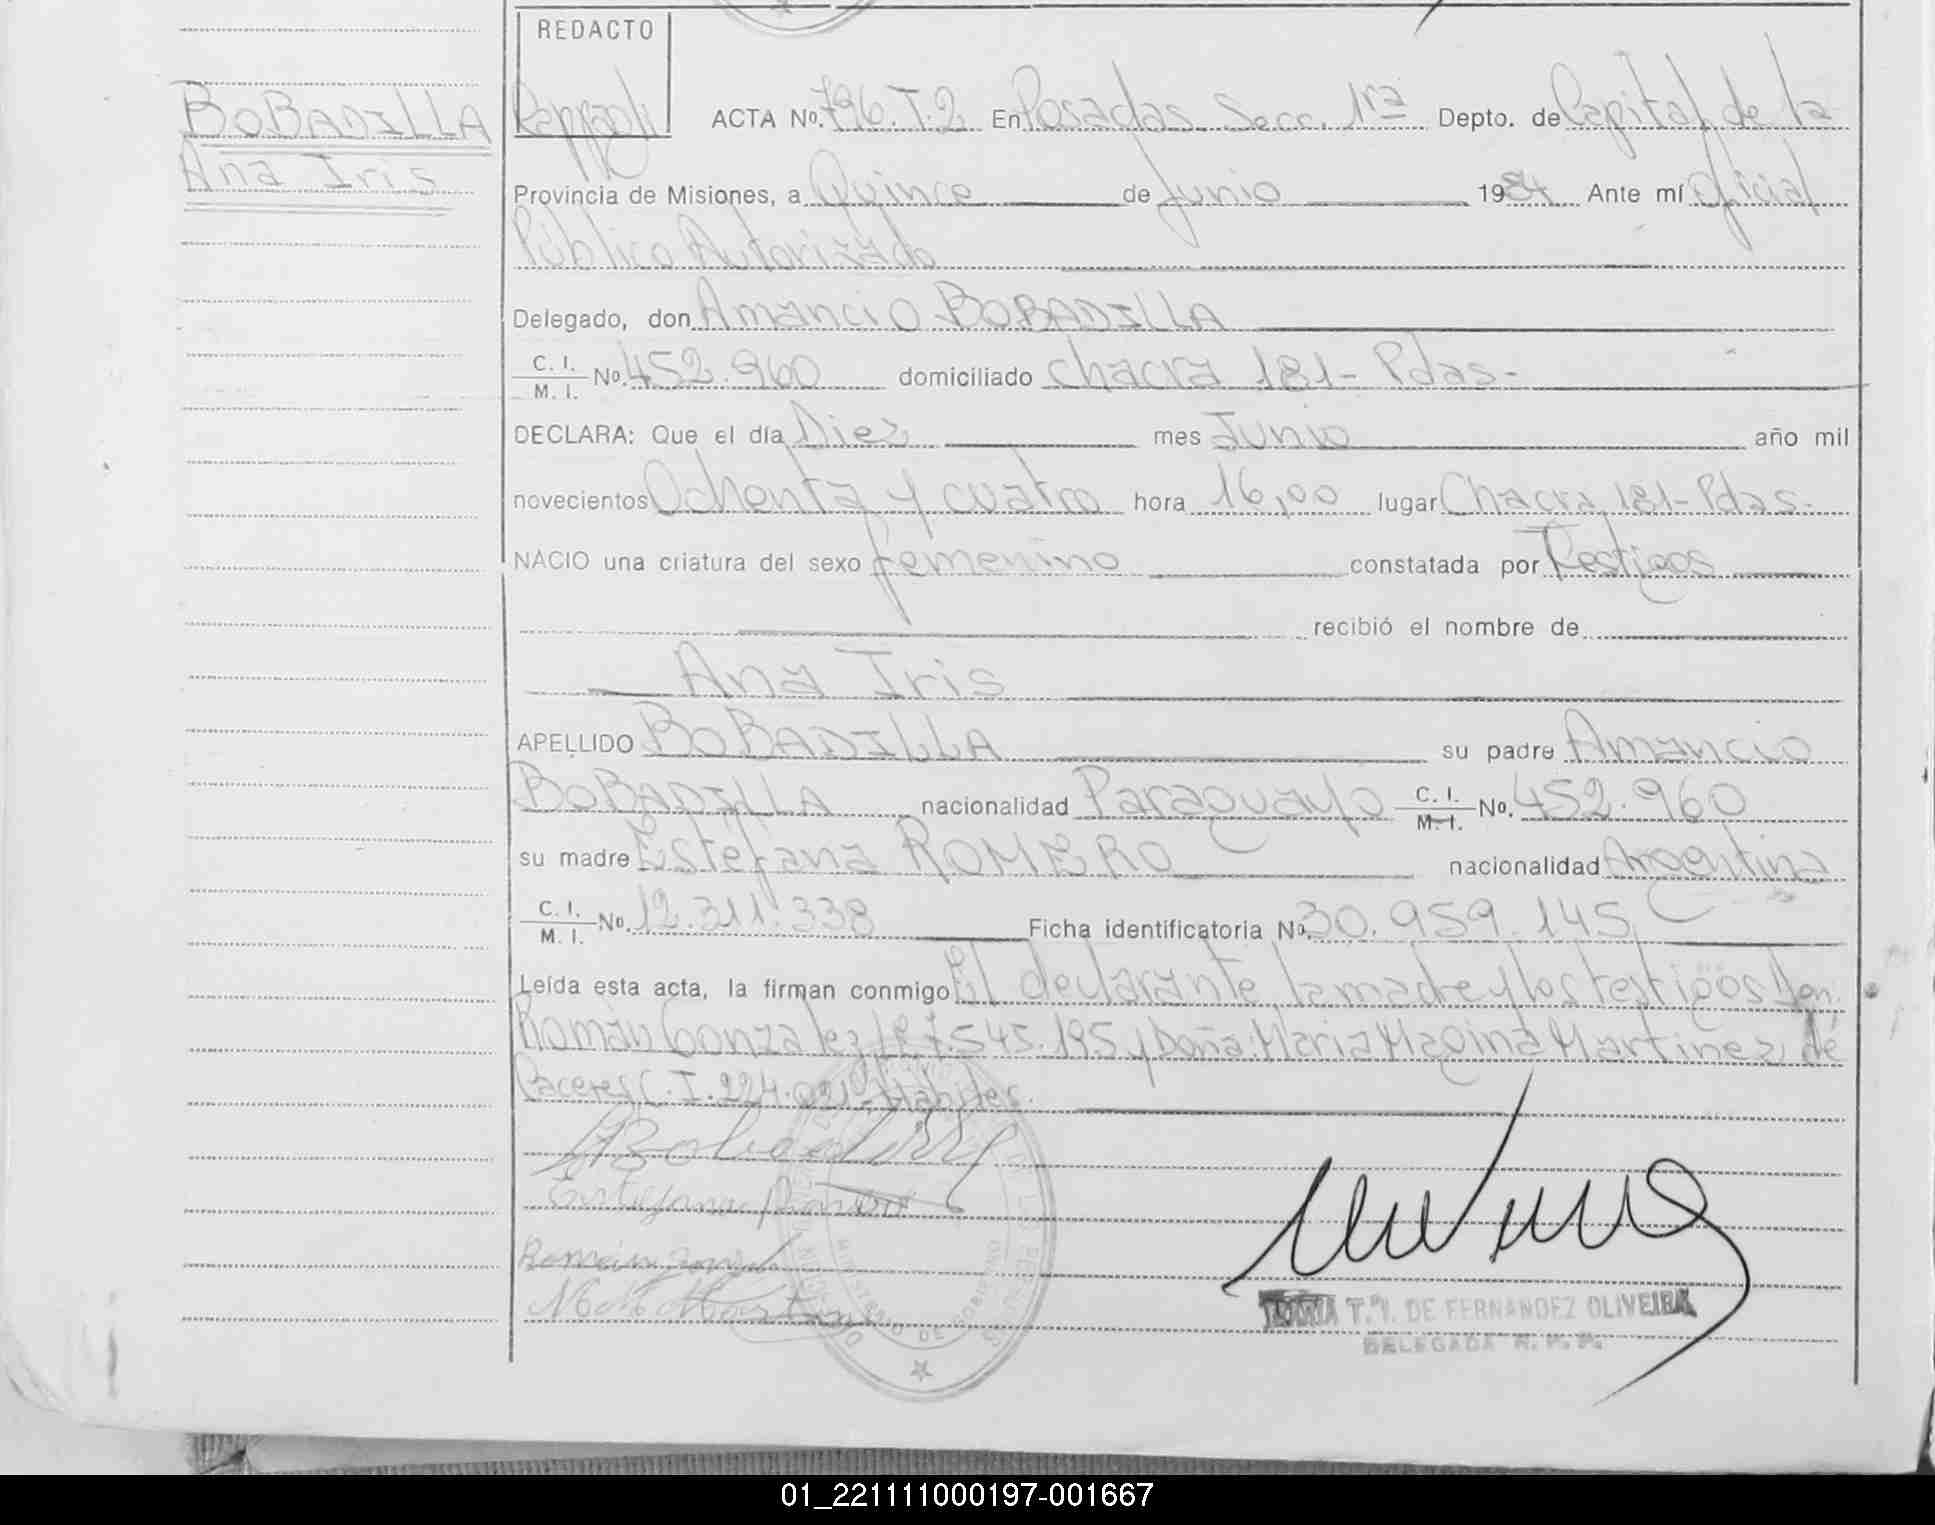 REDACTO
BOBADILLA
Ana Iris
ACTA Nº. 796.T.2 En Posadas. Secc. 1ra Depto. de Capital de la
Provincia de Misiones, a Quince de Junio 1984 Ante mí Oficial
Público Autorizado
Delegado, don Amancio BOBADILLA
C. I. M. I. Nº. 452.960 domiciliado chacra 181- Pdas-
DECLARA: Que el día Diez mes Junio año mil
novecientos Ochenta y cuatro hora 16,00 lugar Chacra 181- Pdas-
NACIO una criatura del sexo femenino constatada por Testigos
recibió el nombre de
Ana Iris
APELLIDO BOBADILLA su padre Amancio
BOBADILLA nacionalidad Paraguayo C. I. M. I. Nº. 452.960
su madre Estefana ROMERO nacionalidad Argentina
C. I. M. I. Nº. 12.311.338 Ficha identificatoria Nº. 30.959.145
Leída esta acta, la firman conmigo El declarante, la madre y los testigos Don:
Román Gonzalez 7.545.195 y Doña: Maria Magina Martinez de
Caceres C.I. 224.021- Hábiles.
ABobadilla
Estefana Romero
Román
MINISTERIO DE GOBIERNO
MARIA T. I. DE FERNANDEZ OLIVEIRA
DELEGADA R. P. P.
01_221111000197-001667